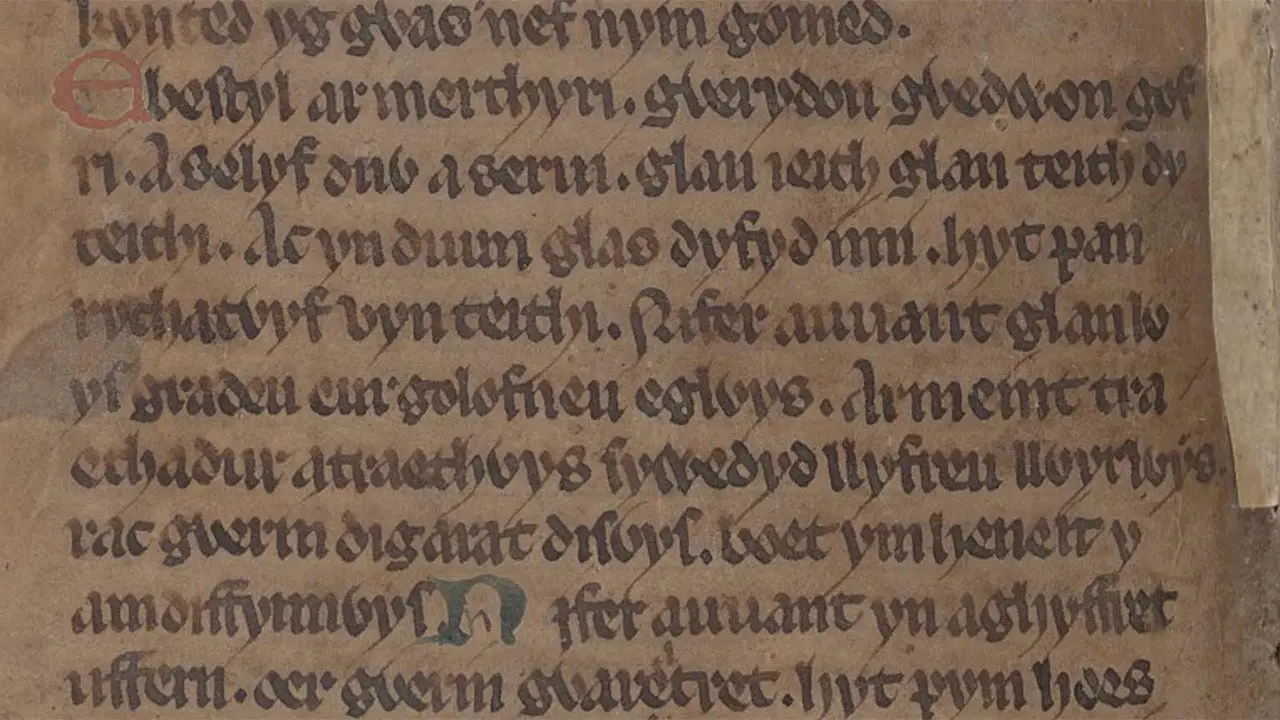 kynted yg gỽas nef nym gomed.
Ebestyl ar merthyri. gỽerydon gỽedỽon gof
ri. A selyf duỽ a serin. glan ieith glan teith dy
teithi. Ac yn duun glas dyfyd imi. hyt pan
rychatỽyf vyn teithi. Nifer auuant glanlỽ
ys gradeu eur golofneu eglỽys. Armeint tra
ethadur atraethỽys sywedyd llyfreu llỽyrỽys.
rac gỽerin digarat disỽys. boet ym heneit y
amdiffynnỽys Nifer auuant yn aghyffret
uffern. oer gỽerin gỽaretret. hyt pym hoes